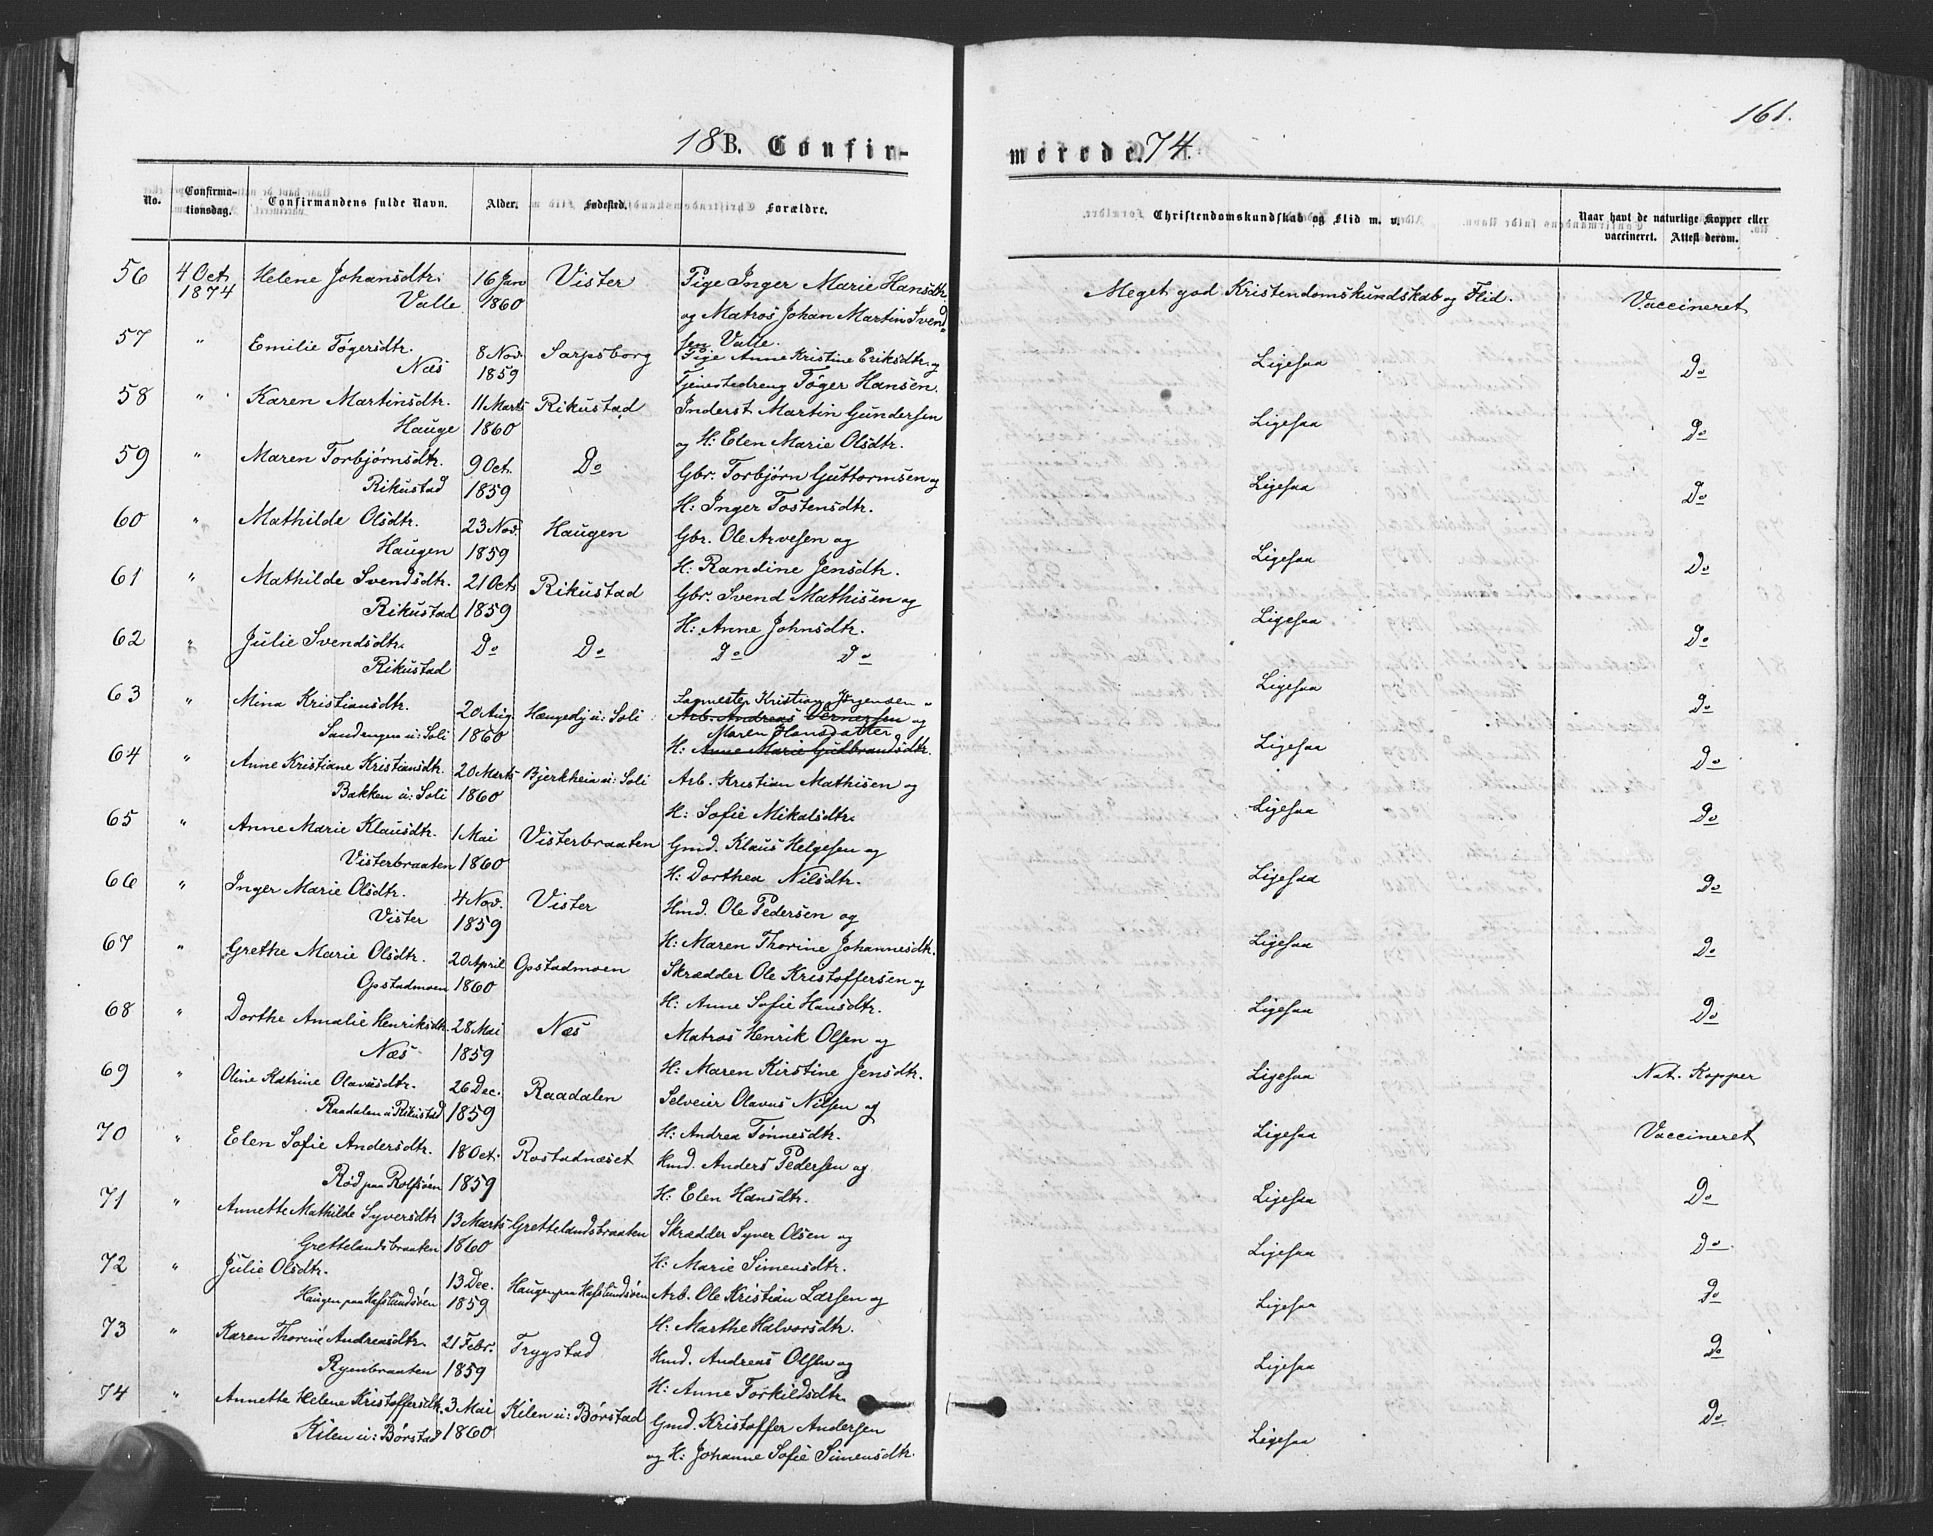 161.
18 B. Confir- merede. 74.
No. Confirma-tionsdag. Confirmandens fulde Navn. Alder. Fødested. Forældre. Christendomskundskab og Flid m. v. Naar havt de naturlige Kopper eller vaccineret. Attest derom.
56 4 Oct. Helene Johansdtr. 16 Jan Vister Pige Inger Marie Hansdtr. Meget god Kristendomskundskab og Flid. Vaccineret
1874 Valle 1860 og Matros Johan Martin Svend-
sen Valle.
57 " Emilie Tøgersdtr. 8 Nov. Sarpsborg Pige Anne Kristine Eriksdtr. og Ligesaa Do
Næs 1859 Tjenestedreng Tøger Hansen.
58 " Karen Martinsdtr. 11 Marts Rikustad Inderst Martin Gundersen Ligesaa Do
Hauge 1860 og H: Elen Marie Olsdtr.
59 " Maren Torbjørnsdtr. 9 Oct. Do Gbr. Torbjørn Guttormsen og Ligesaa Do
Rikustad 1859 H: Inger Tostensdtr.
60 " Mathilde Olsdtr. 23 Nov. Haugen Gbr. Ole Arvesen og Ligesaa Do
Haugen 1859 H: Randine Jensdtr.
61 " Mathilde Svendsdtr. 21 Oct. Rikustad Gbr. Svend Mathisen og Ligesaa Do
Rikustad 1859 H: Anne Johnsdtr.
62 " Julie Svendsdtr. Do Do Do Do Ligesaa Do
Rikustad
63 " Mina Kristiansdtr. 20 Aug. Hængedy u: Soli Sagmester Kristian Jørgensen Ligesaa Do
Arb. Andreas Vernersen og
Sandengen u: Soli 1860 Maren Hansdatter
H: Anne Marie Gudbrandsdtr.
64 " Anne Kristiane Kristiansdtr. 20 Marts Bjerkheia u: Soli Arb. Kristian Mathisen og Ligesaa Do
Bakken u: Soli 1860 H: Sofie Mikalsdtr.
65 " Anne Marie Klausdtr. 1 Mai Visterbraaten Gmd. Klaus Helgesen og Ligesaa Do
Visterbraaten 1860 H: Dorthea Nilsdtr.
66 " Inger Marie Olsdtr. 4 Nov. Vister Hmd. Ole Pedersen og Ligesaa Do
Vister 1859 H: Maren Thorine Johannesdtr.
67 " Grethe Marie Olsdtr. 20 April Opstadmoen Skrædder Ole Kristoffersen og Ligesaa Do
Opstadmoen 1860 H: Anne Sofie Hansdtr.
68 " Dorthe Amalie Henriksdtr. 28 Mai Næs Matros Henrik Olsen og Ligesaa Do
Næs 1859 H: Maren Kirstine Jensdtr.
69 " Oline Katrine Olavusdtr. 26 Dec. Raadalen Selveier Olavus Nilsen og Ligesaa Nat. Kopper
Raadalen u Rikustad 1859 H: Andrea Tønnesdtr.
70 " Elen Sofie Andersdtr. 18 Oct. Rostadnæset Hmd. Anders Pedersen og Ligesaa Vaccineret
Rød paa Rolfsøen 1859 H: Elen Hansdtr.
71 " Annette Mathilde Syversdtr 13 Marts Grettelandsbraaten Skrædder Syver Olsen og Ligesaa Do
Grettelandsbraaten 1860 H: Marie Simensdtr.
72 " Julie Olsdtr. 13 Dec. Haugen paa Hafslundsøen Arb. Ole Kristian Larsen og Ligesaa Do
Haugen paa Hafslundsøen 1859 H: Marthe Halvorsdtr. Ligesaa Do
73 " Karen Thorine Andreasdtr. 21 Febr. Trygstad Hmd. Andreas Olsen og Ligesaa Do
Ryenbraaten 1859 H: Anne Torkildsdtr.
74 " Annette Helene Kristoffersdtr. 3 Mai Kilen u: Børstad Gmd. Kristoffer Andersen Ligesaa Do
Kilen u: Børstad 1860 og H: Johanne Sofie Simensdtr.